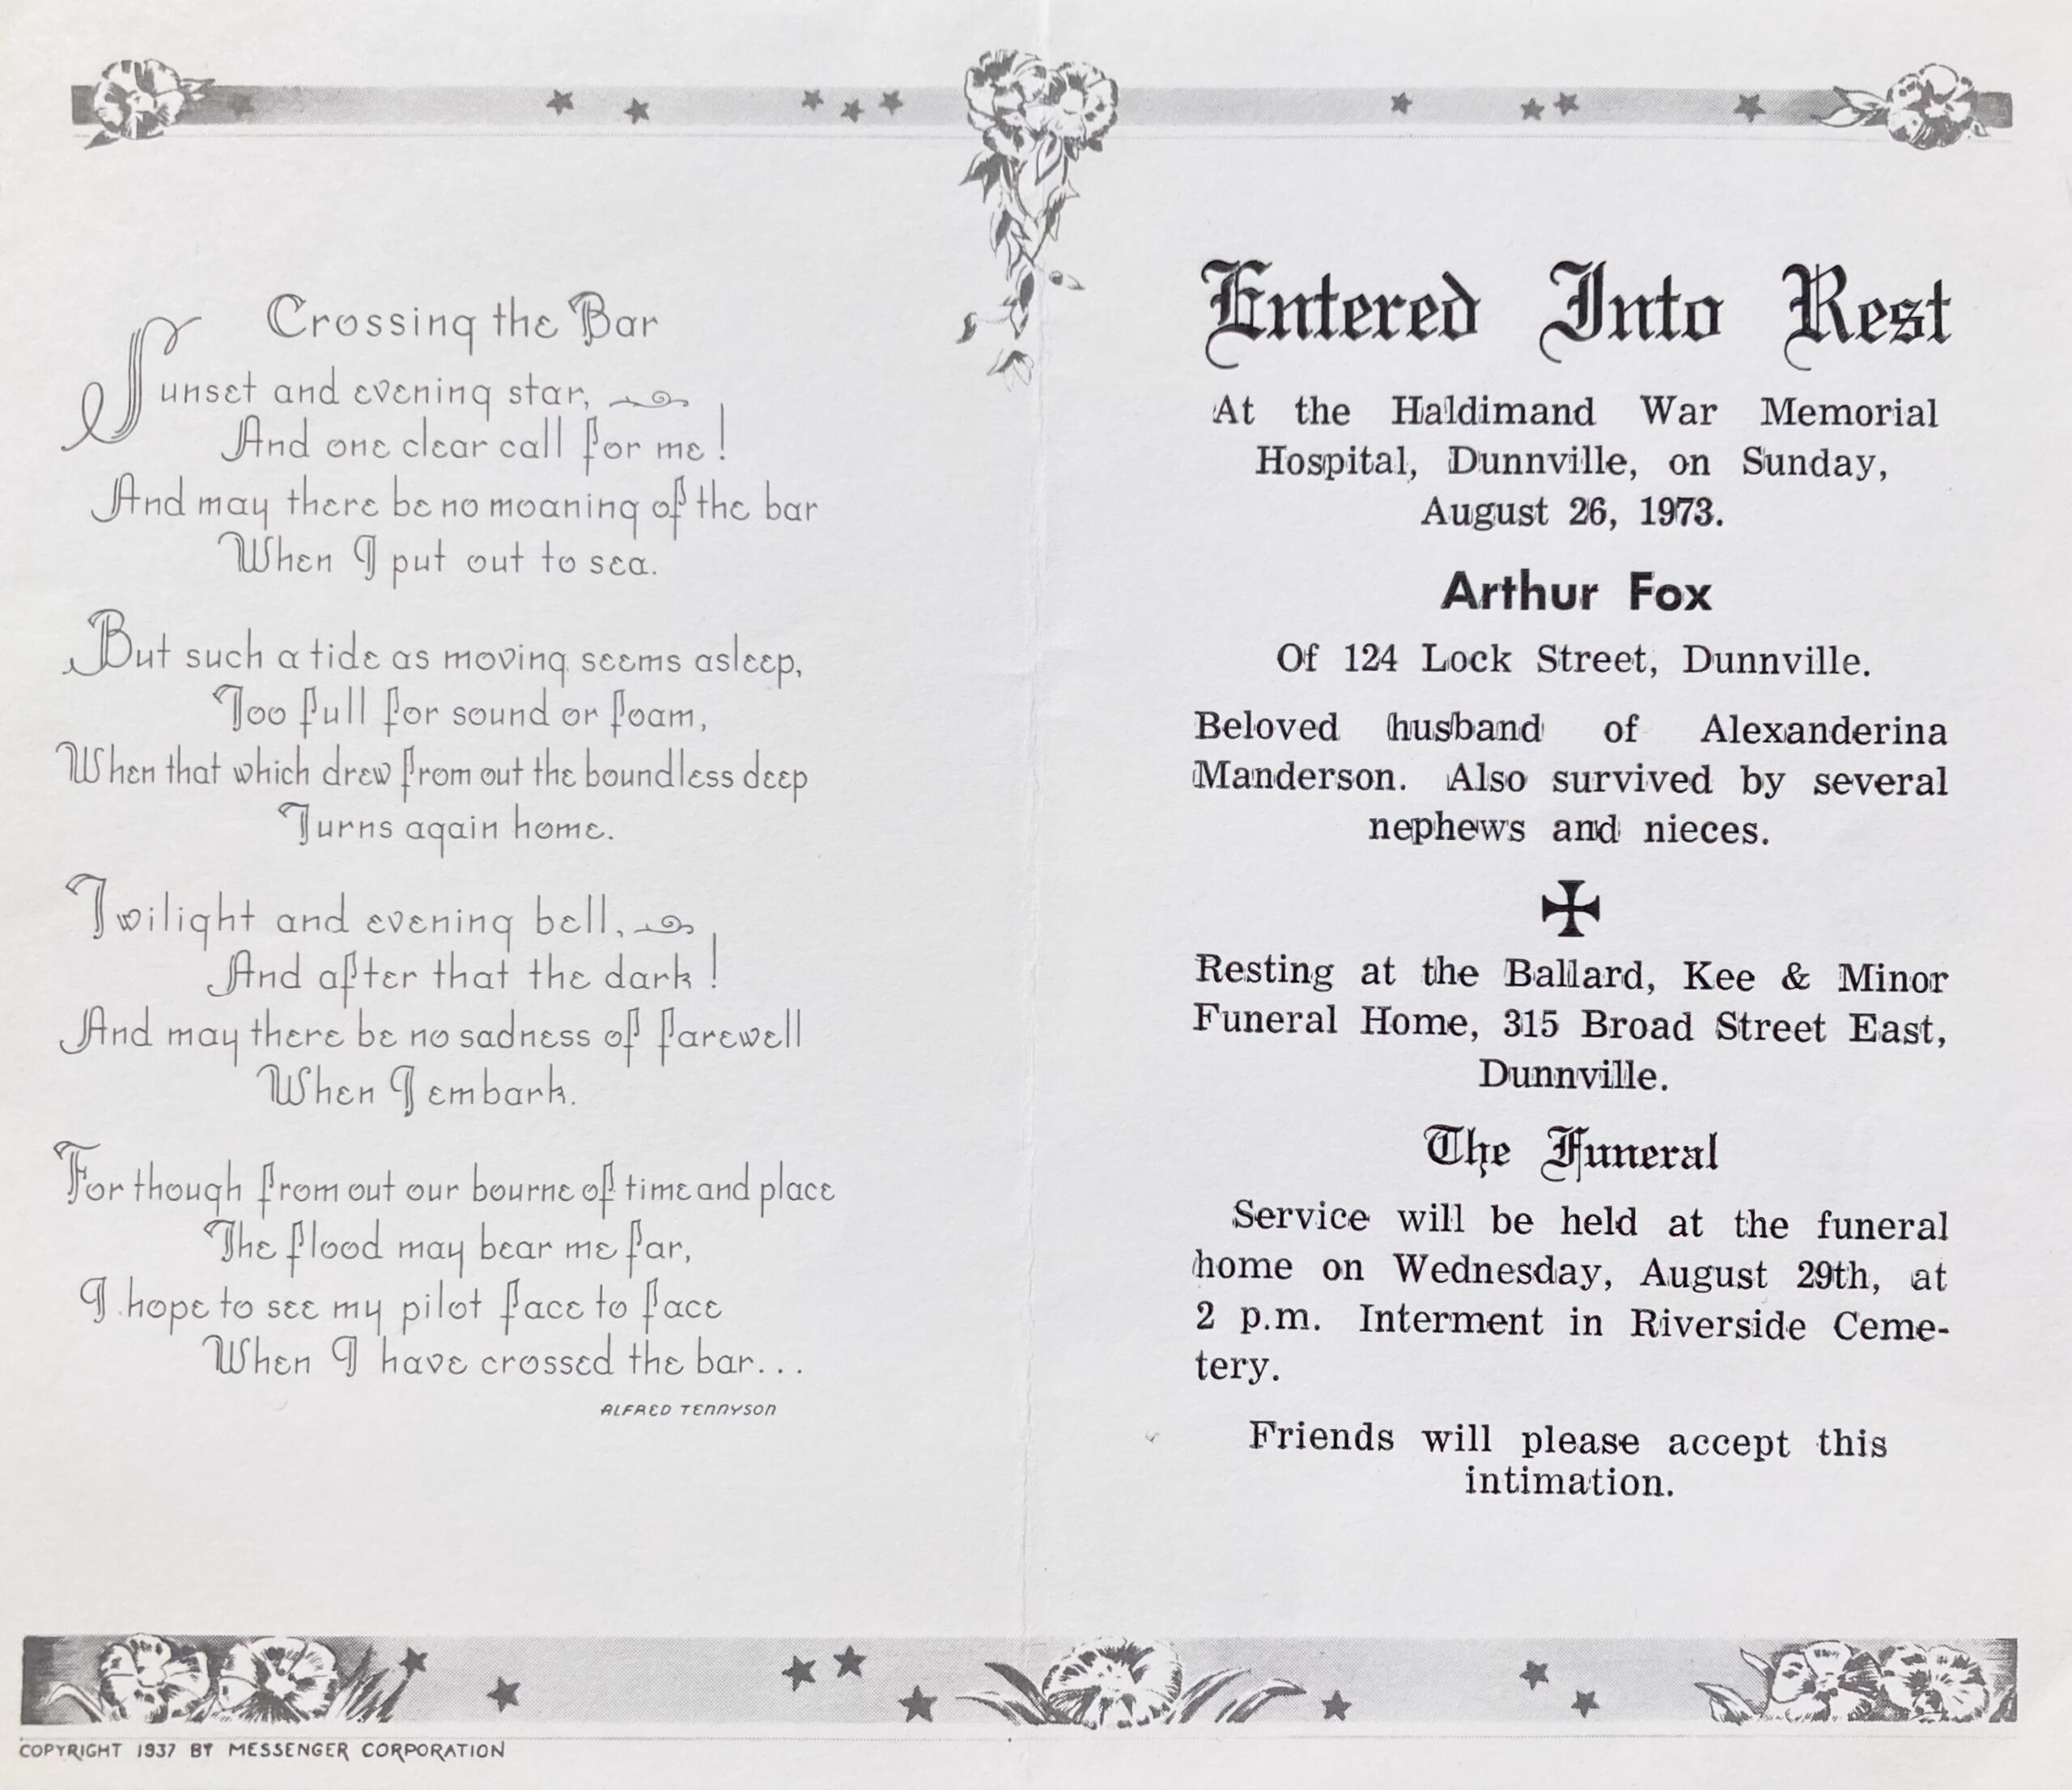 Crossing the Bar
Sunset and evening star,
And one clear call for me!
And may there be no moaning of the bar
When I put out to sea.
But such a tide as moving seems asleep,
Too full for sound or foam,
When that which drew from out the boundless deep
Turns again home.
Twilight and evening bell,
And after that the dark!
And may there be no sadness of farewell
When I embark.
For though from out our bourne of time and place
The flood may bear me far,
I hope to see my pilot face to face
When I have crossed the bar...
ALFRED TENNYSON
COPYRIGHT 1937 BY MESSENGER CORPORATION
Entered Into Rest
At the Haldimand War Memorial
Hospital, Dunnville, on Sunday,
August 26, 1973.
Arthur Fox
Of 124 Lock Street, Dunnville.
Beloved husband of Alexanderina
Manderson. Also survived by several
nephews and nieces.
Resting at the Ballard, Kee & Minor
Funeral Home, 315 Broad Street East,
Dunnville.
The Funeral
Service will be held at the funeral
home on Wednesday, August 29th, at
2 p.m. Interment in Riverside Ceme-
tery.
Friends will please accept this
intimation.